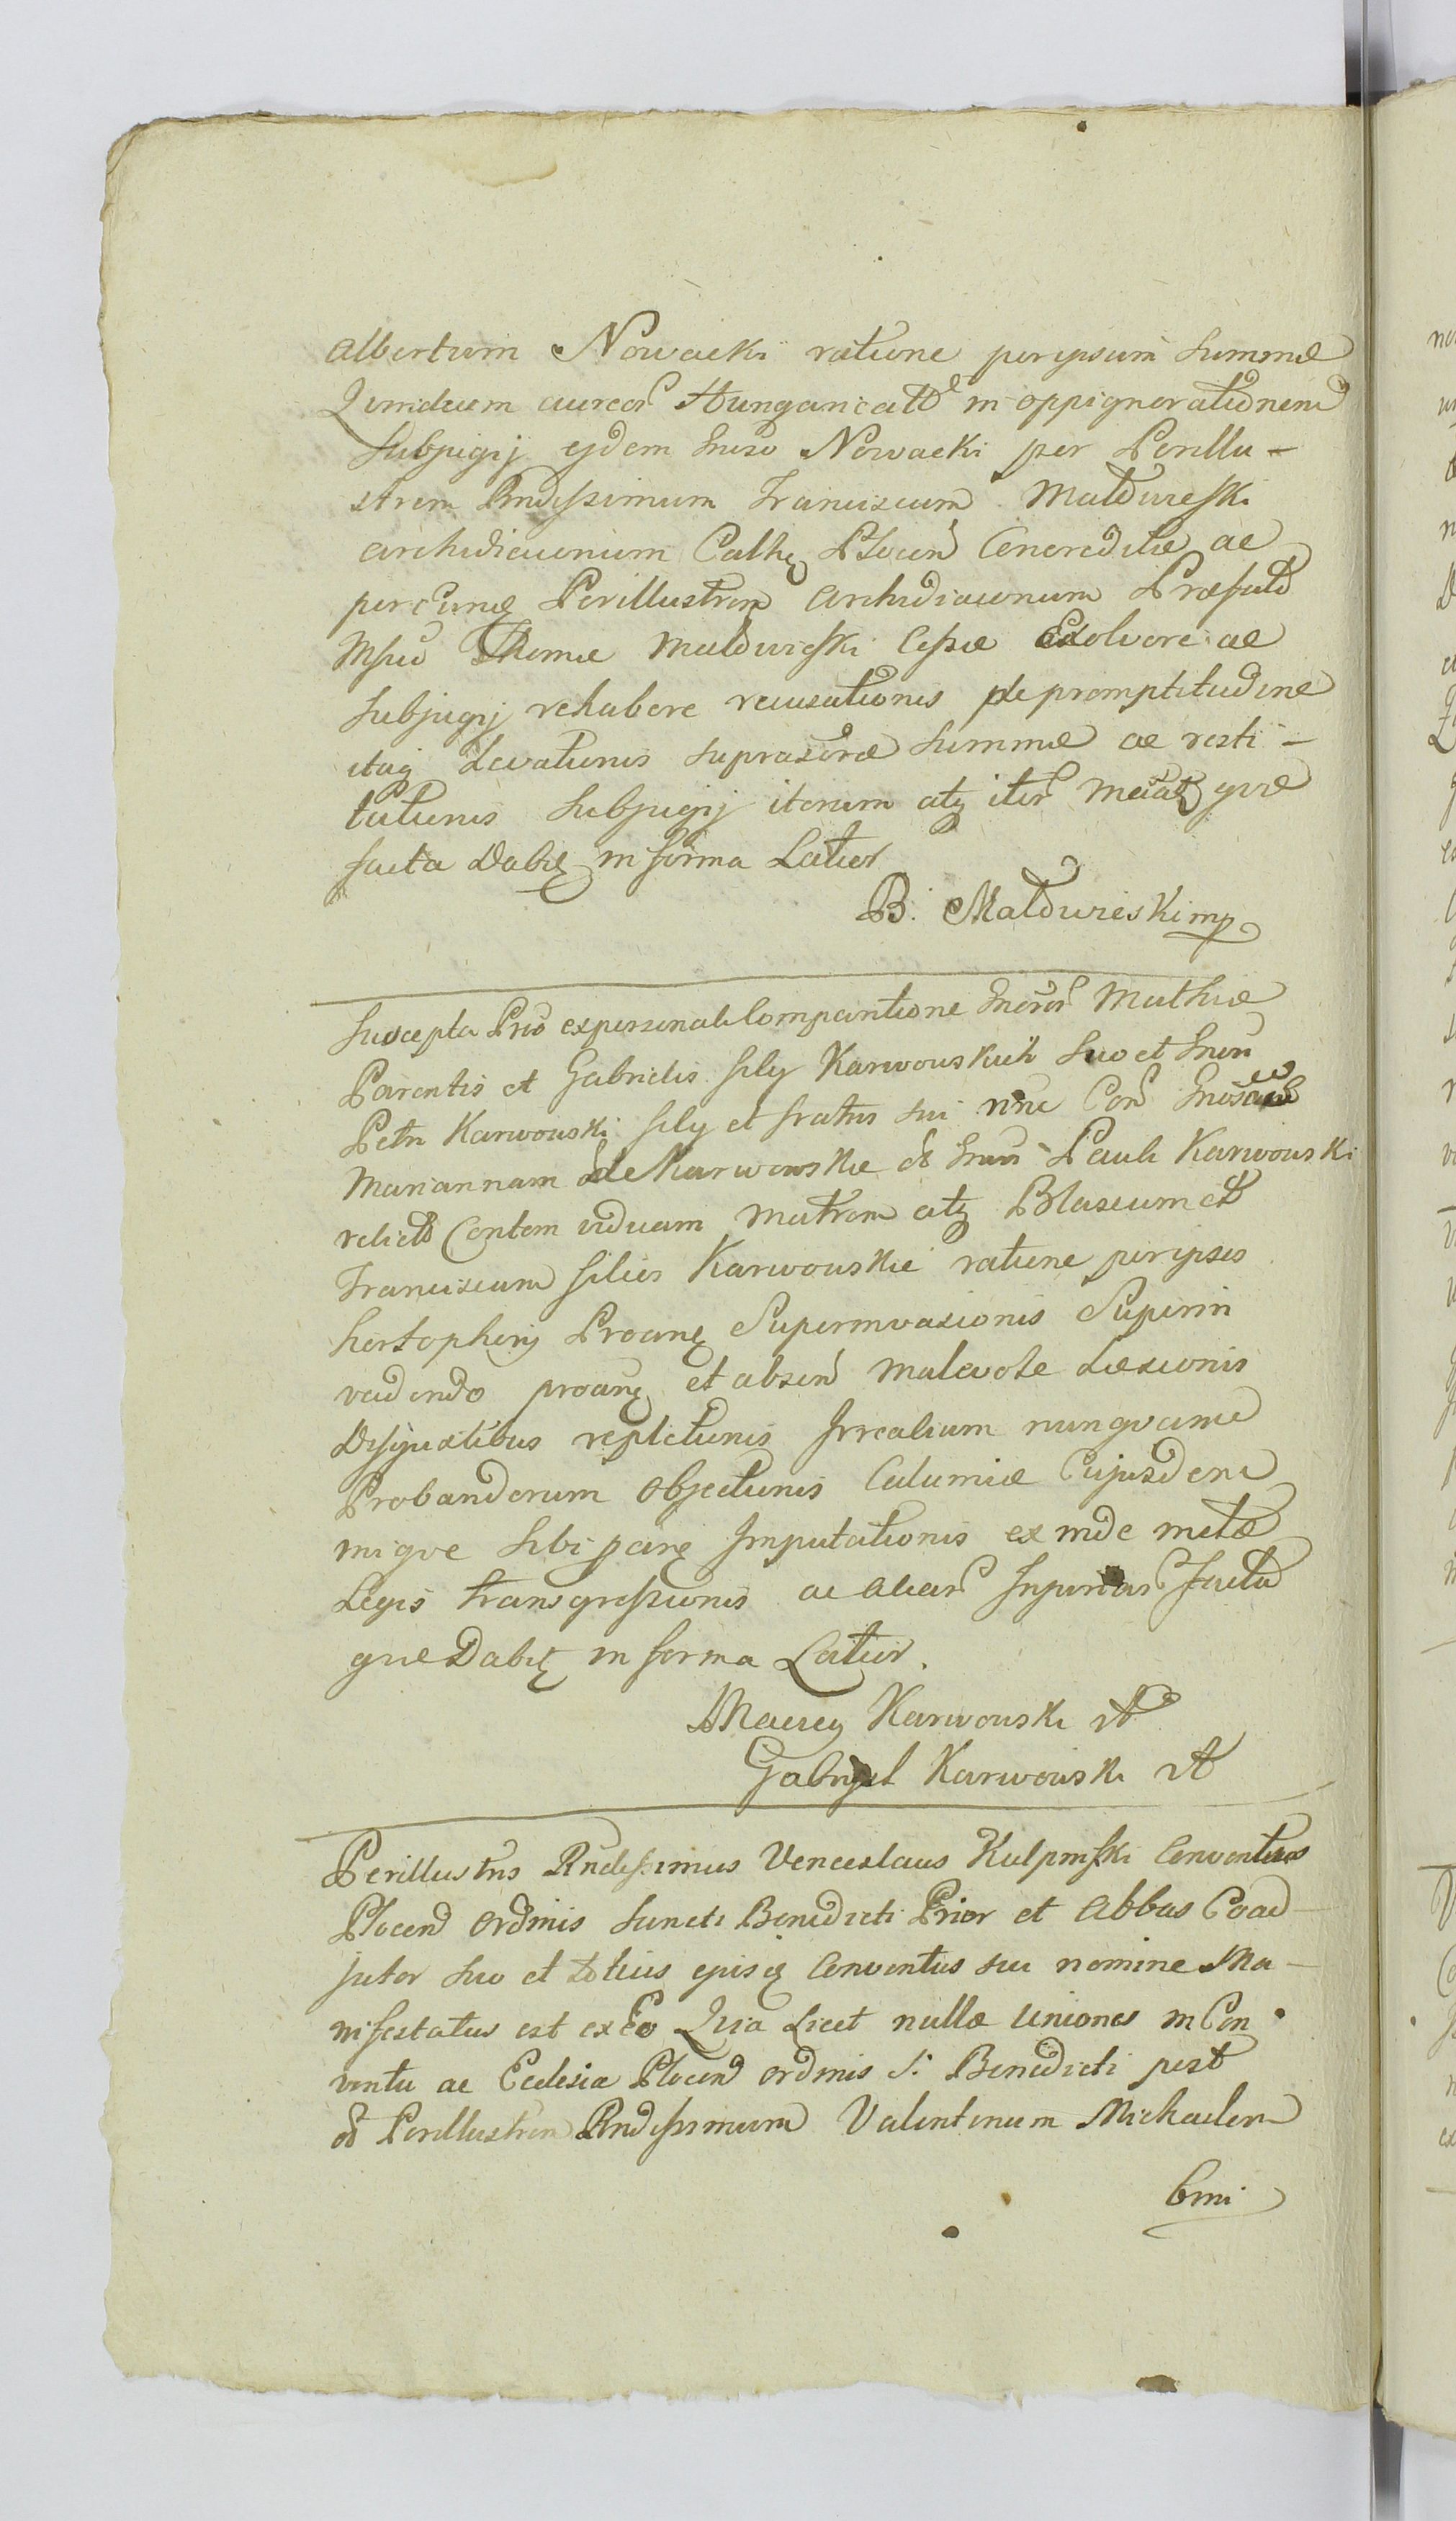 Albertum Nowacki ratione per ipsum Summæ
Quindecim aureor Hungaricali in oppignorationem
Subpigij ejdem Gnso Nowacki per Perillu-
strem Rndissimum Franciscum Maldureski
Archidiaconum Cathę Plocen Concreditæ ac
per eund Perillustrem Archidiaconum Præfato
Msco Thomæ Maldureski Cessæ Exolvere ac
Subpigij rehabere recusationis de promptitudine
itaq Levationis suprascræ Summæ ac resti-
tutionis Subpigij iterum atq iter
facta Dabit in forma Latior
B. Maldureski mp
Suscepta Prio ex personali Comparitione Gneror Mathiæ
Parentis et Gabrielis filij Karwouskich suo et Gnsi
Petri Karwouski filij et fratris sui nne Con
Mariannam de Karwowskie Pauli Karwouski
relictæ Contem viduam Matrem atq Blasium et
Franciscum filios Karwouskie ratione per ipsos
Protanę Superinvasionis Superin
vadendo protanę et absen Malevole Læsionis
Disgustibus repletionis Irrealium nunquam
Probandorum Objectionis Calumiæ Cujusdem
nique sibi parę Imputationis ex inde metæ
Legis transgressionis ac aliar Injuriar facta
que Dabit in forma Latior.
Maciey Karwouski
Gabryel Karwouski
Perillustris Rndissimus Venceslaus Kulpinski Conventus
Plocen Ordinis Sancti Benedicti Prior et Abbas Coad-
jutor suo et totius Conventus sui nomine Ma-
nifestatus est ex Eo Quia Licet nullæ Uniones in Con
ventu ac Ecclesia Plocen Ordinis S. Benedicti post
Perillustrem Rndissimum Valentinum Michaelem